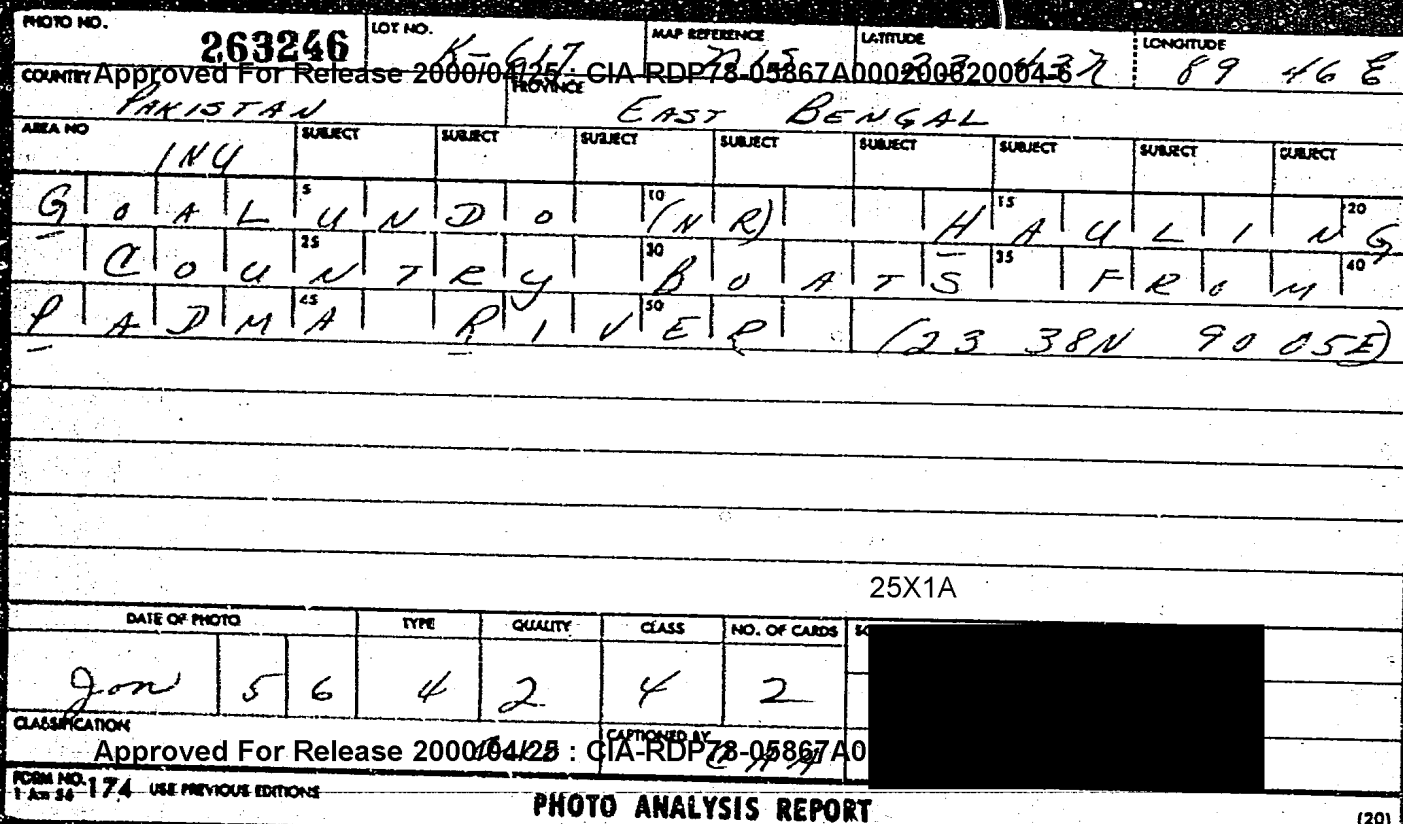 PHOTO NO. 263246 LOT NO. K-617 MAP REFERENCE LATITUDE LONGITUDE 89 46 E
COUNTRY Approved For Release 2000/04/25 : CIA-RDP78-05867A000200620004-6
PAKISTAN PROVINCE EAST BENGAL
AREA NO INU SUBJECT SUBJECT SUBJECT SUBJECT SUBJECT SUBJECT SUBJECT SUBJECT
GOALUNDO (NR) HAULING
5 10 15 20
COUNTRY BOATS FROM
25 30 35 40
PADMA RIVER (23 38N 90 05E)
45 50
25X1A
DATE OF PHOTO TYPE QUALITY CLASS NO. OF CARDS
Jan 5 6 4 2 4 2
CLASSIFICATION CAPTIONED BY
Approved For Release 2000/04/25 : CIA-RDP78-05867A0
FORM NO. 174 USE PREVIOUS EDITIONS
PHOTO ANALYSIS REPORT
(20)